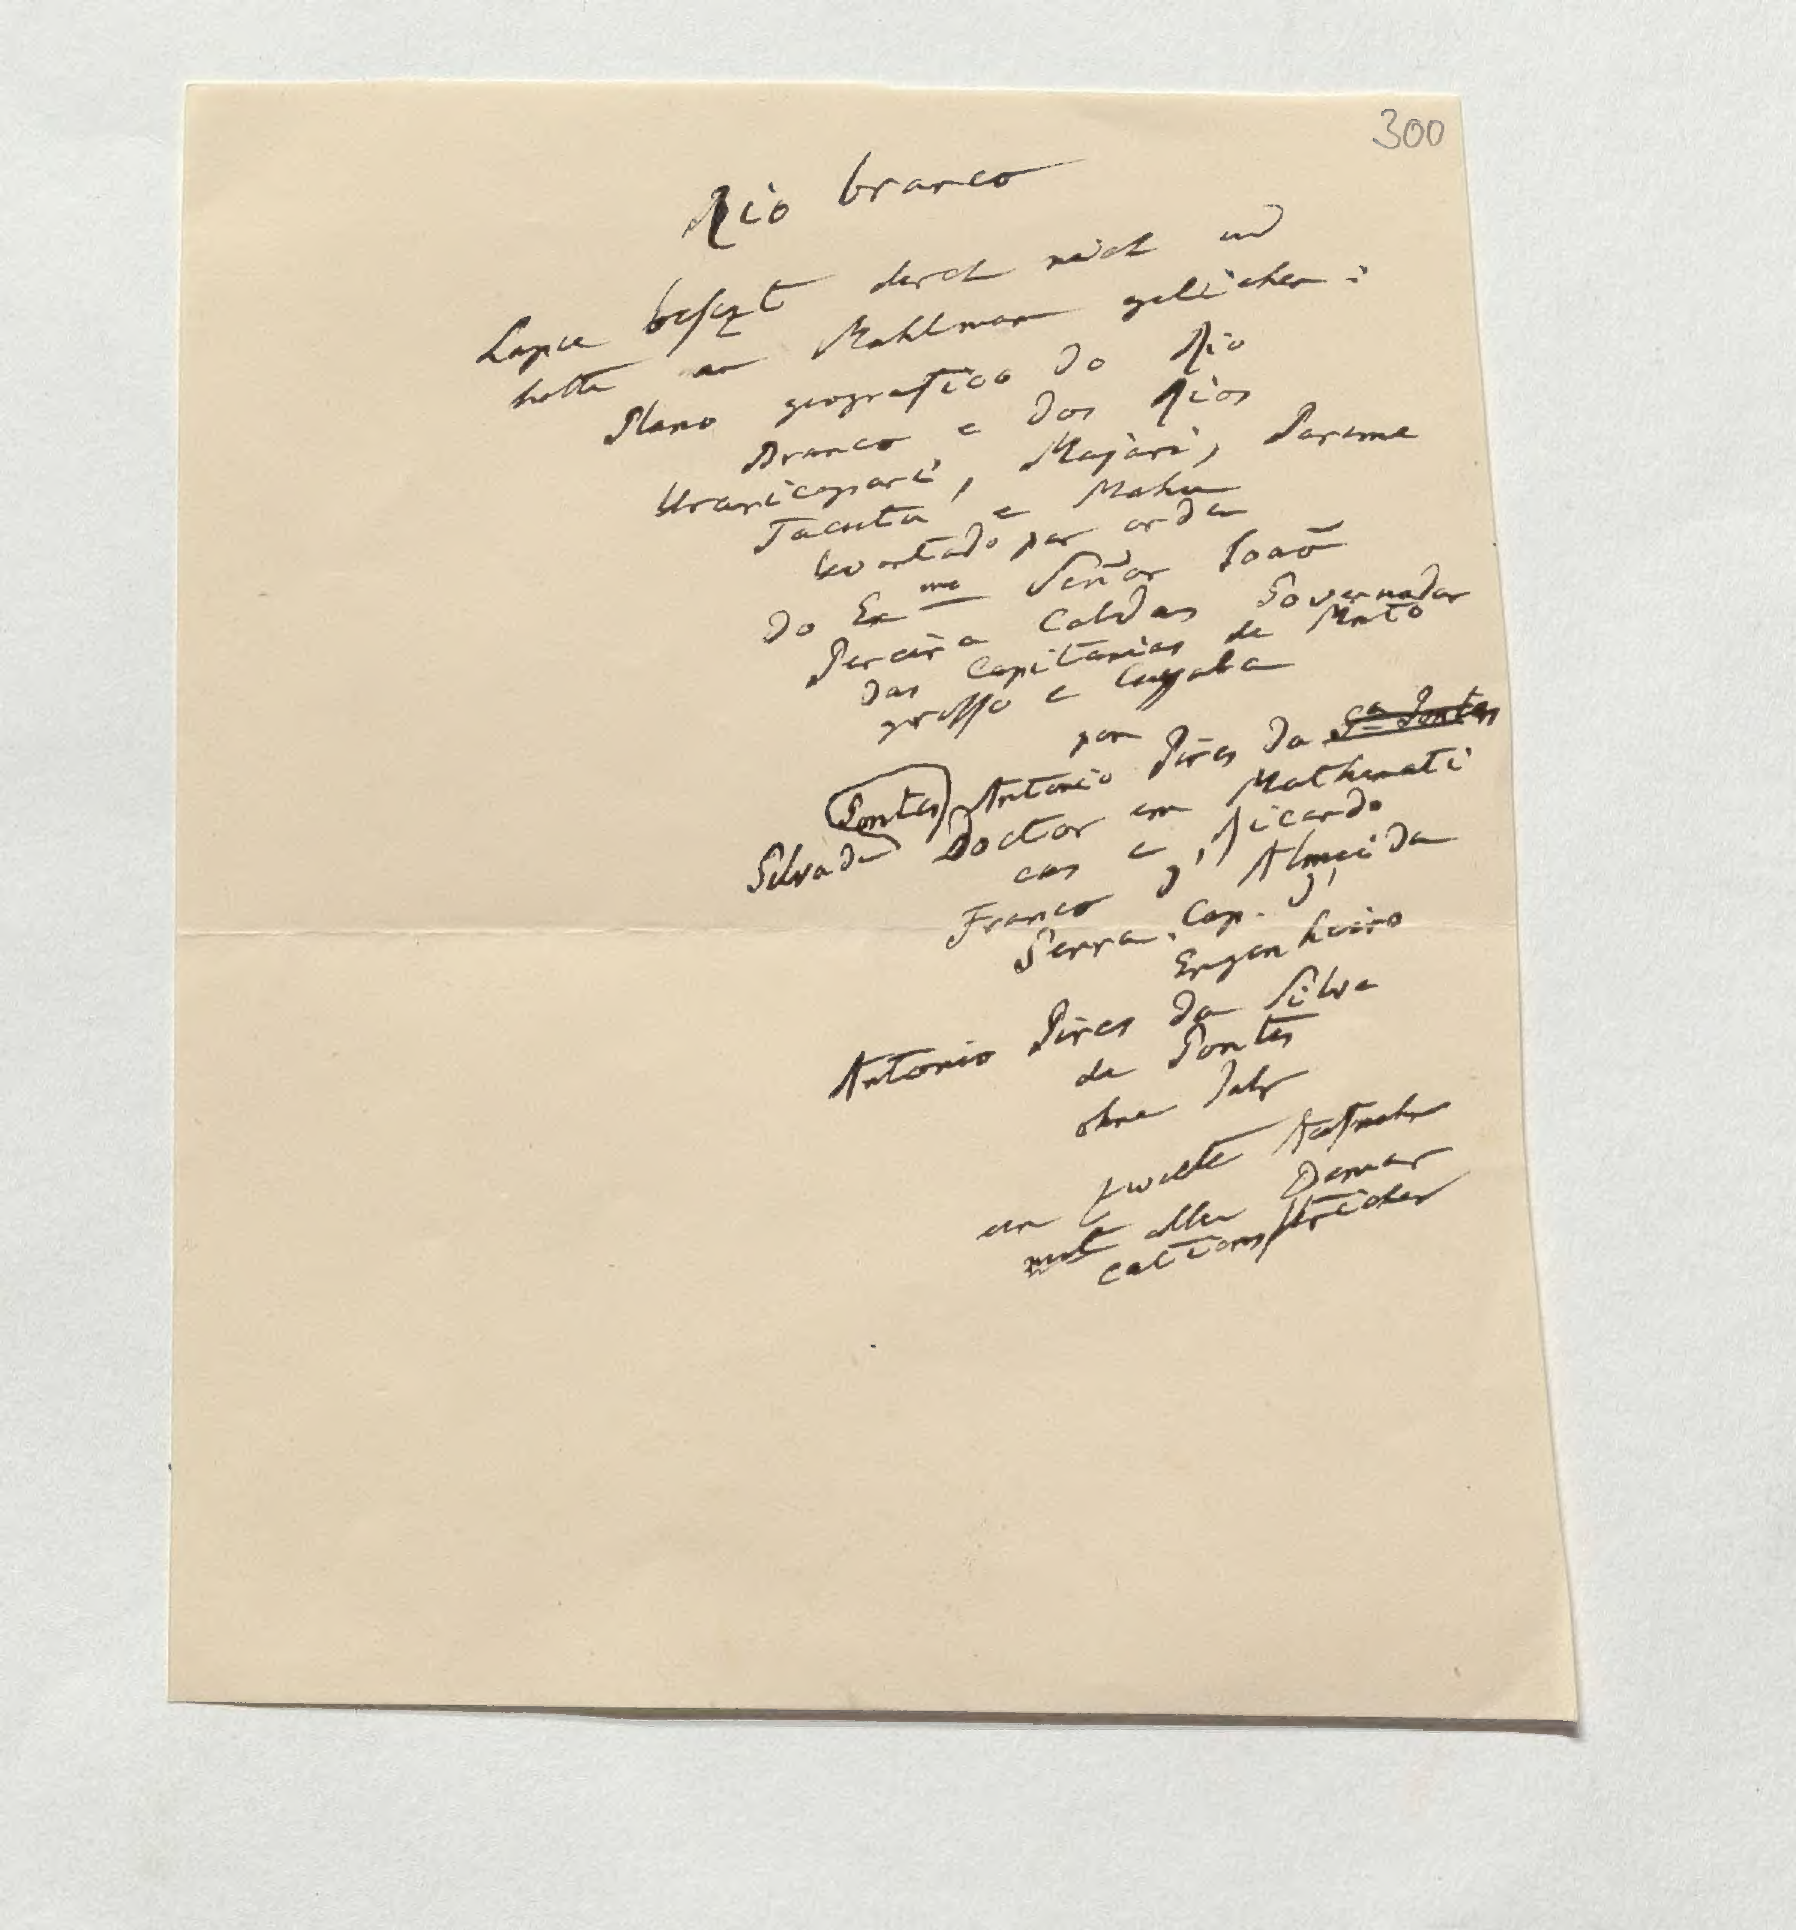 300
Rio branco
Lapie besizt durch mich und
hatte an Mahlman geliehen:
Plano geografico do Rio
Branco e dos Rios
Uraricapari, Majari, Parime
Tacutu e Mahu
levantado por orden
do Exmo Señor Joaõ
Pereira Caldas Governador
das Capitanias de Mato
grosso e Cuyaba
por
Antonio Pires da Sa Pontes
Pontes
Silva da Doctor em Mathemati
cas e Ricardo
Franco d'Almeida
Serra, Cap. d'
Engenheiro
Antonio Pires da Silva
de Pontes
ohne Jahr
ein zweite Aufnahme
mit allen Demar
cationsstrichen